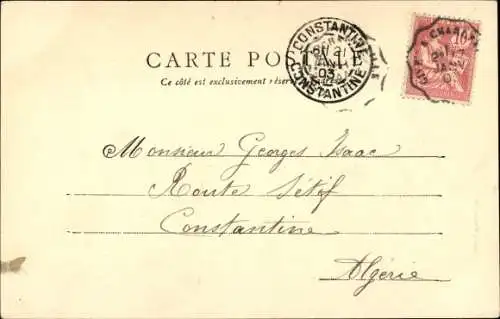 CARTE POSTALE
Ce côté est exclusivement réservé
CONSTANTINE
03
CONSTANTINE
10
Monsieur Georges Isaac
Route Sétif
Constantine
Algérie